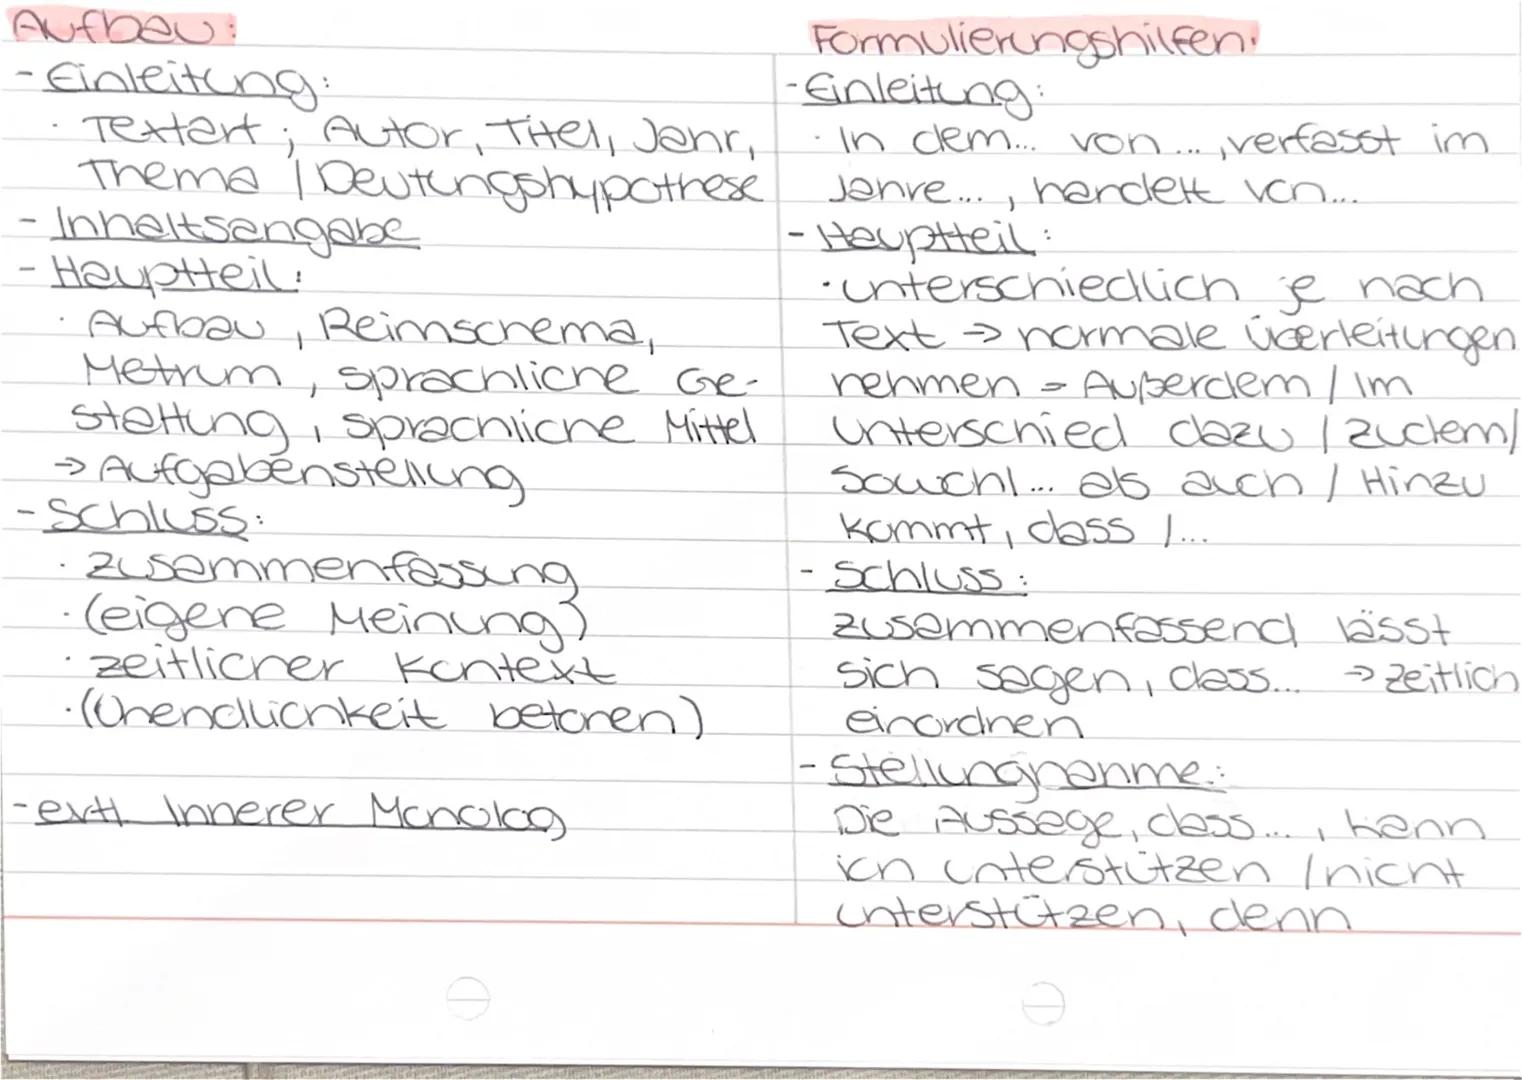 Aufbau:
- Einleitung:
· Textart; Autor, Titel, Jahr,
Thema / Deutungshypothese
- Inhaltsangabe
- Hauptteil:
· Aufbau, Reimschema,
Metrum, sprachliche Ge-
staltung, sprachliche Mittel
→ Aufgabenstellung
- Schluss:
· Zusammenfassung
· (eigene Meinung)
· zeitlicher Kontext
· (Unendlichkeit betonen)
- evtl. Innerer Monolog
Formulierungshilfen:
- Einleitung:
· In dem... von ..., verfasst im
Jahre..., handelt von...
- Hauptteil:
· unterschiedlich je nach
Text → normale Überleitungen
nehmen = Außerdem / Im
Unterschied dazu / Zudem/
Sowohl... als auch / Hinzu
kommt, dass /...
- Schluss:
Zusammenfassend lässt
sich sagen, dass... → zeitlich
einordnen
- Stellungnahme:
Die Aussage, dass..., kann
ich unterstützen / nicht
unterstützen, denn